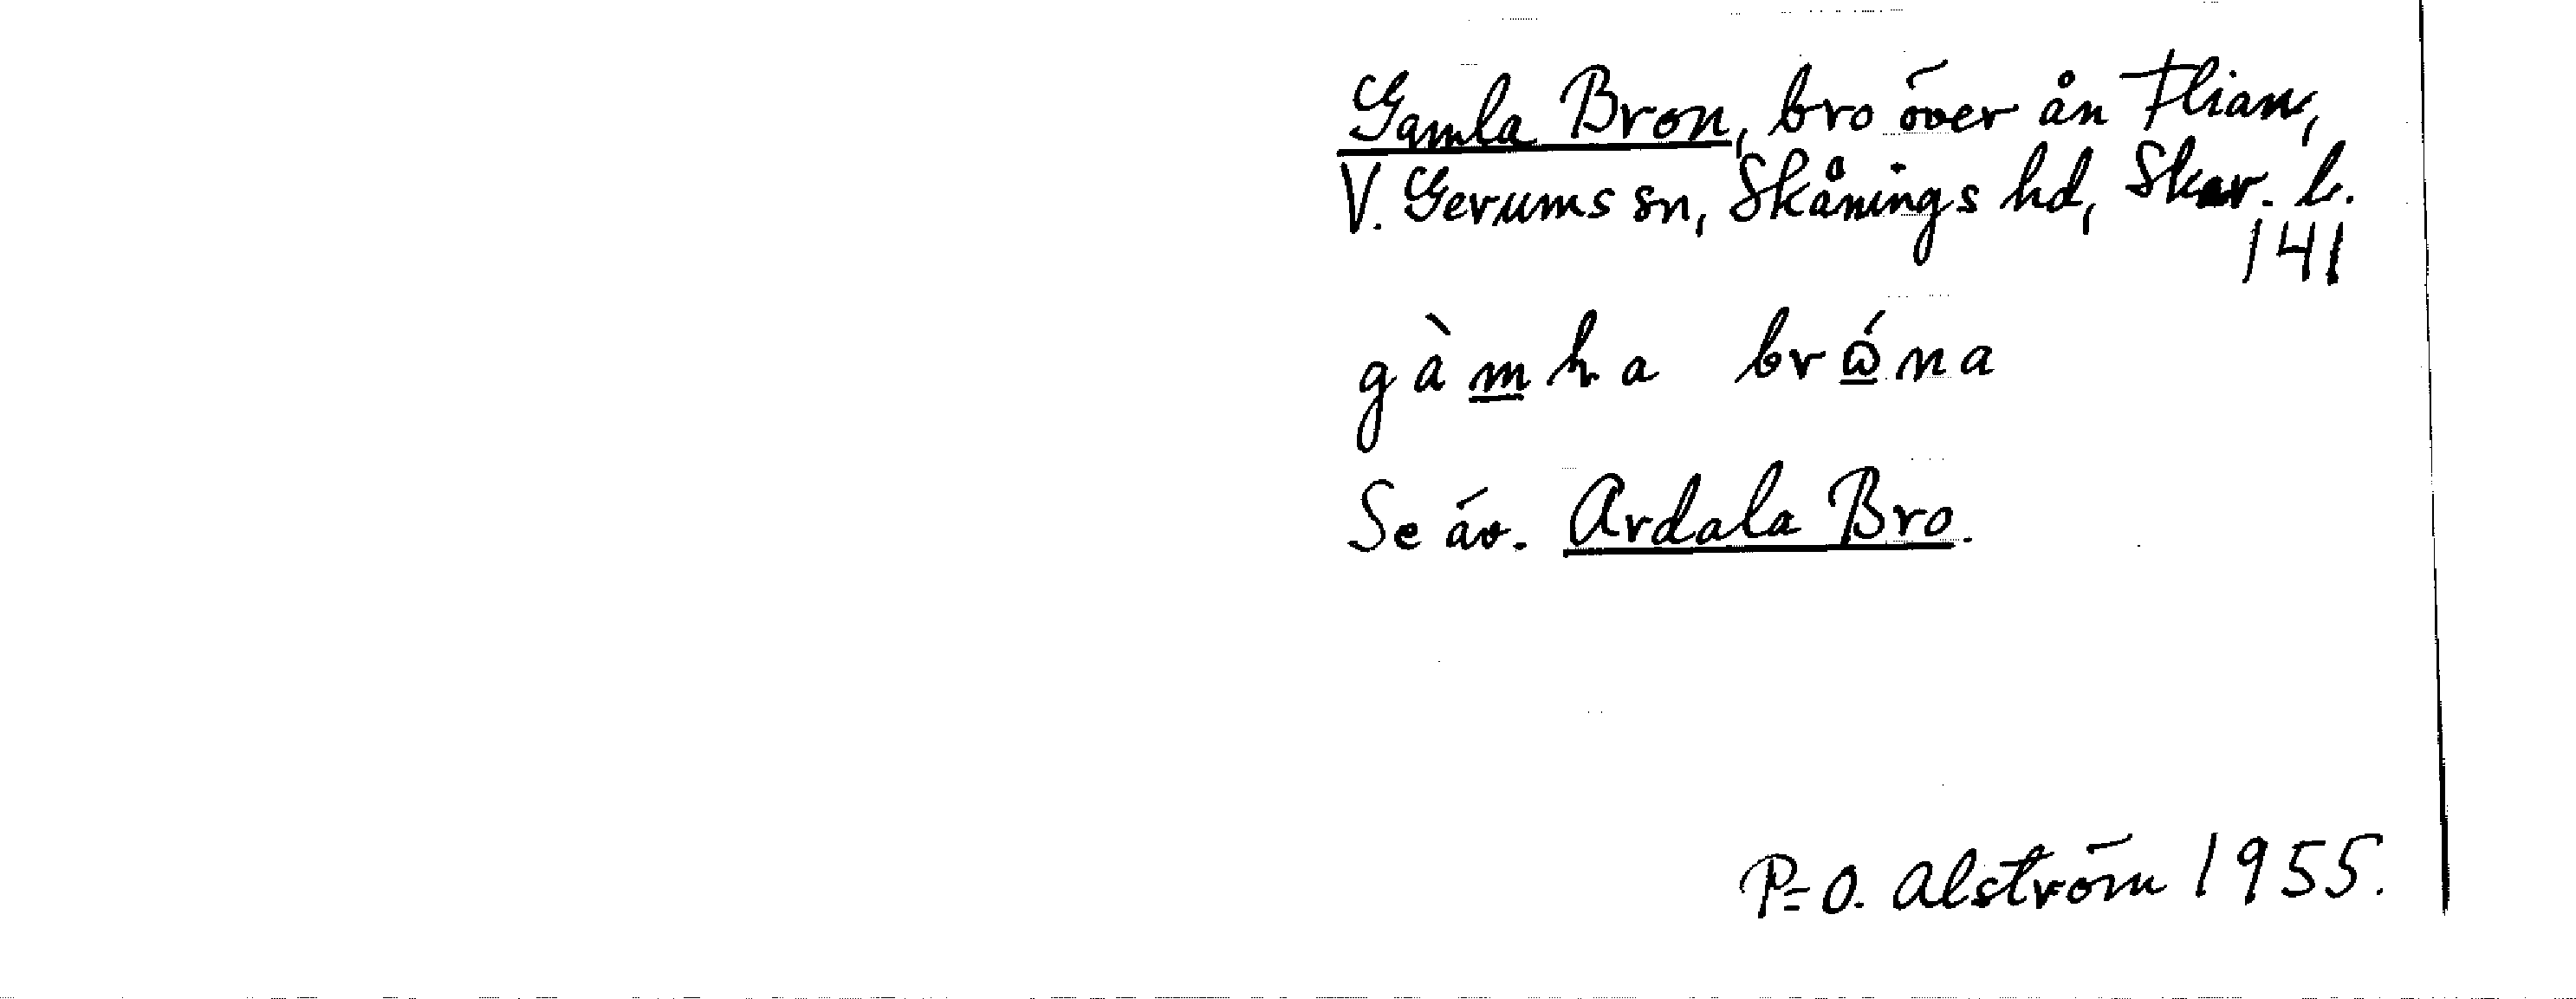 Gamla Bron, bro över ån Flian,
V. Gerums sn, Skånings hd, Skar. l.
141
gàmħa brɷ́na
Se äv. Ardala Bro.
P-O. Alström 1955.